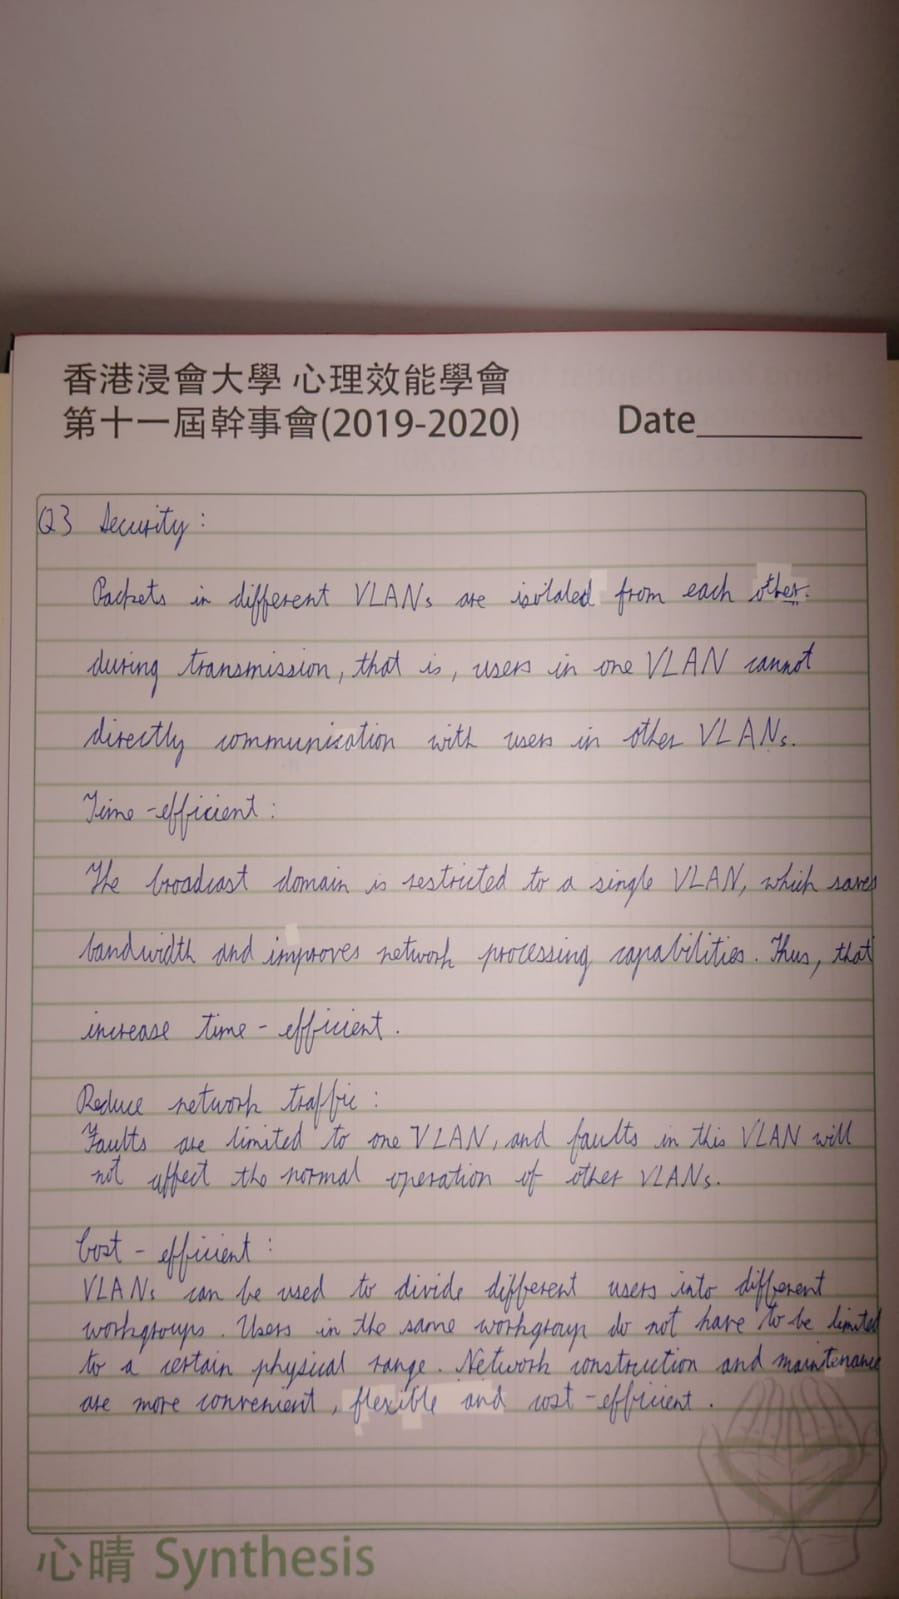 香港浸會大學 心理效能學會
第十一屆幹事會(2019-2020) Date
Q3 Security:
Packets in different VLANs are isolated from each other.
during transmission, that is, users in one VLAN cannot
directly communication with users in other VLANs.
Time-efficient:
The broadcast domain is restricted to a single VLAN, which saves
bandwidth and improves network processing capabilities. Thus, that
increase time-efficient.
Reduce network traffic:
Faults are limited to one VLAN, and faults in this VLAN will
not affect the normal operation of other VLANs.
Cost-efficient:
VLANs can be used to divide different users into different
workgroups. Users in the same workgroup do not have to be limited
to a certain physical range. Network construction and maintenance
are more convenient, flexible and cost-efficient.
心晴 Synthesis